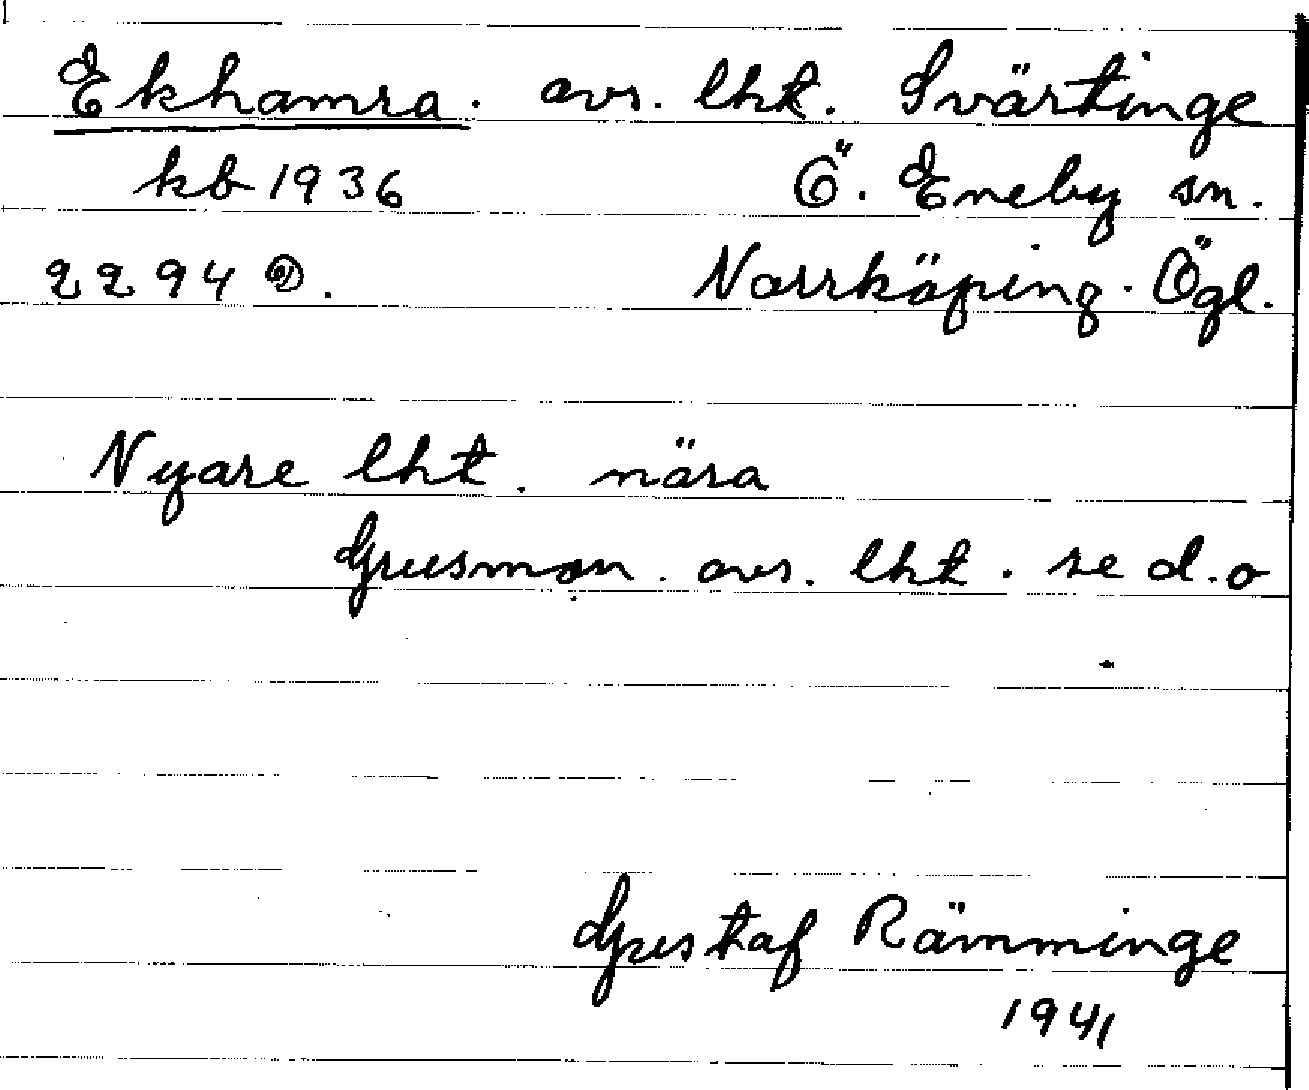 Ekhamra. avs. lht. Svärtinge
kb 1936 Ö. Eneby sn.
2294 Norrköping. Ögl.
Nyare lht. nära
Grusmon. avs. lht. se d.o
Gustaf Rämminge
1941